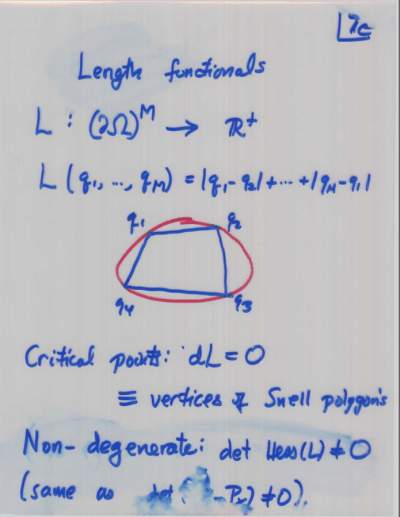 7c
Length functionals
L : (∂Ω)^M → ℝ^+
L (q_1, ..., q_M) = |q_1 - q_2| + ... + |q_M - q_1|
q_1 q_2
q_4 q_3
Critical points: dL = 0
≡ vertices of Snell polygons
Non-degenerate: det Hess(L) ≠ 0
(same as det ) ≠ 0).